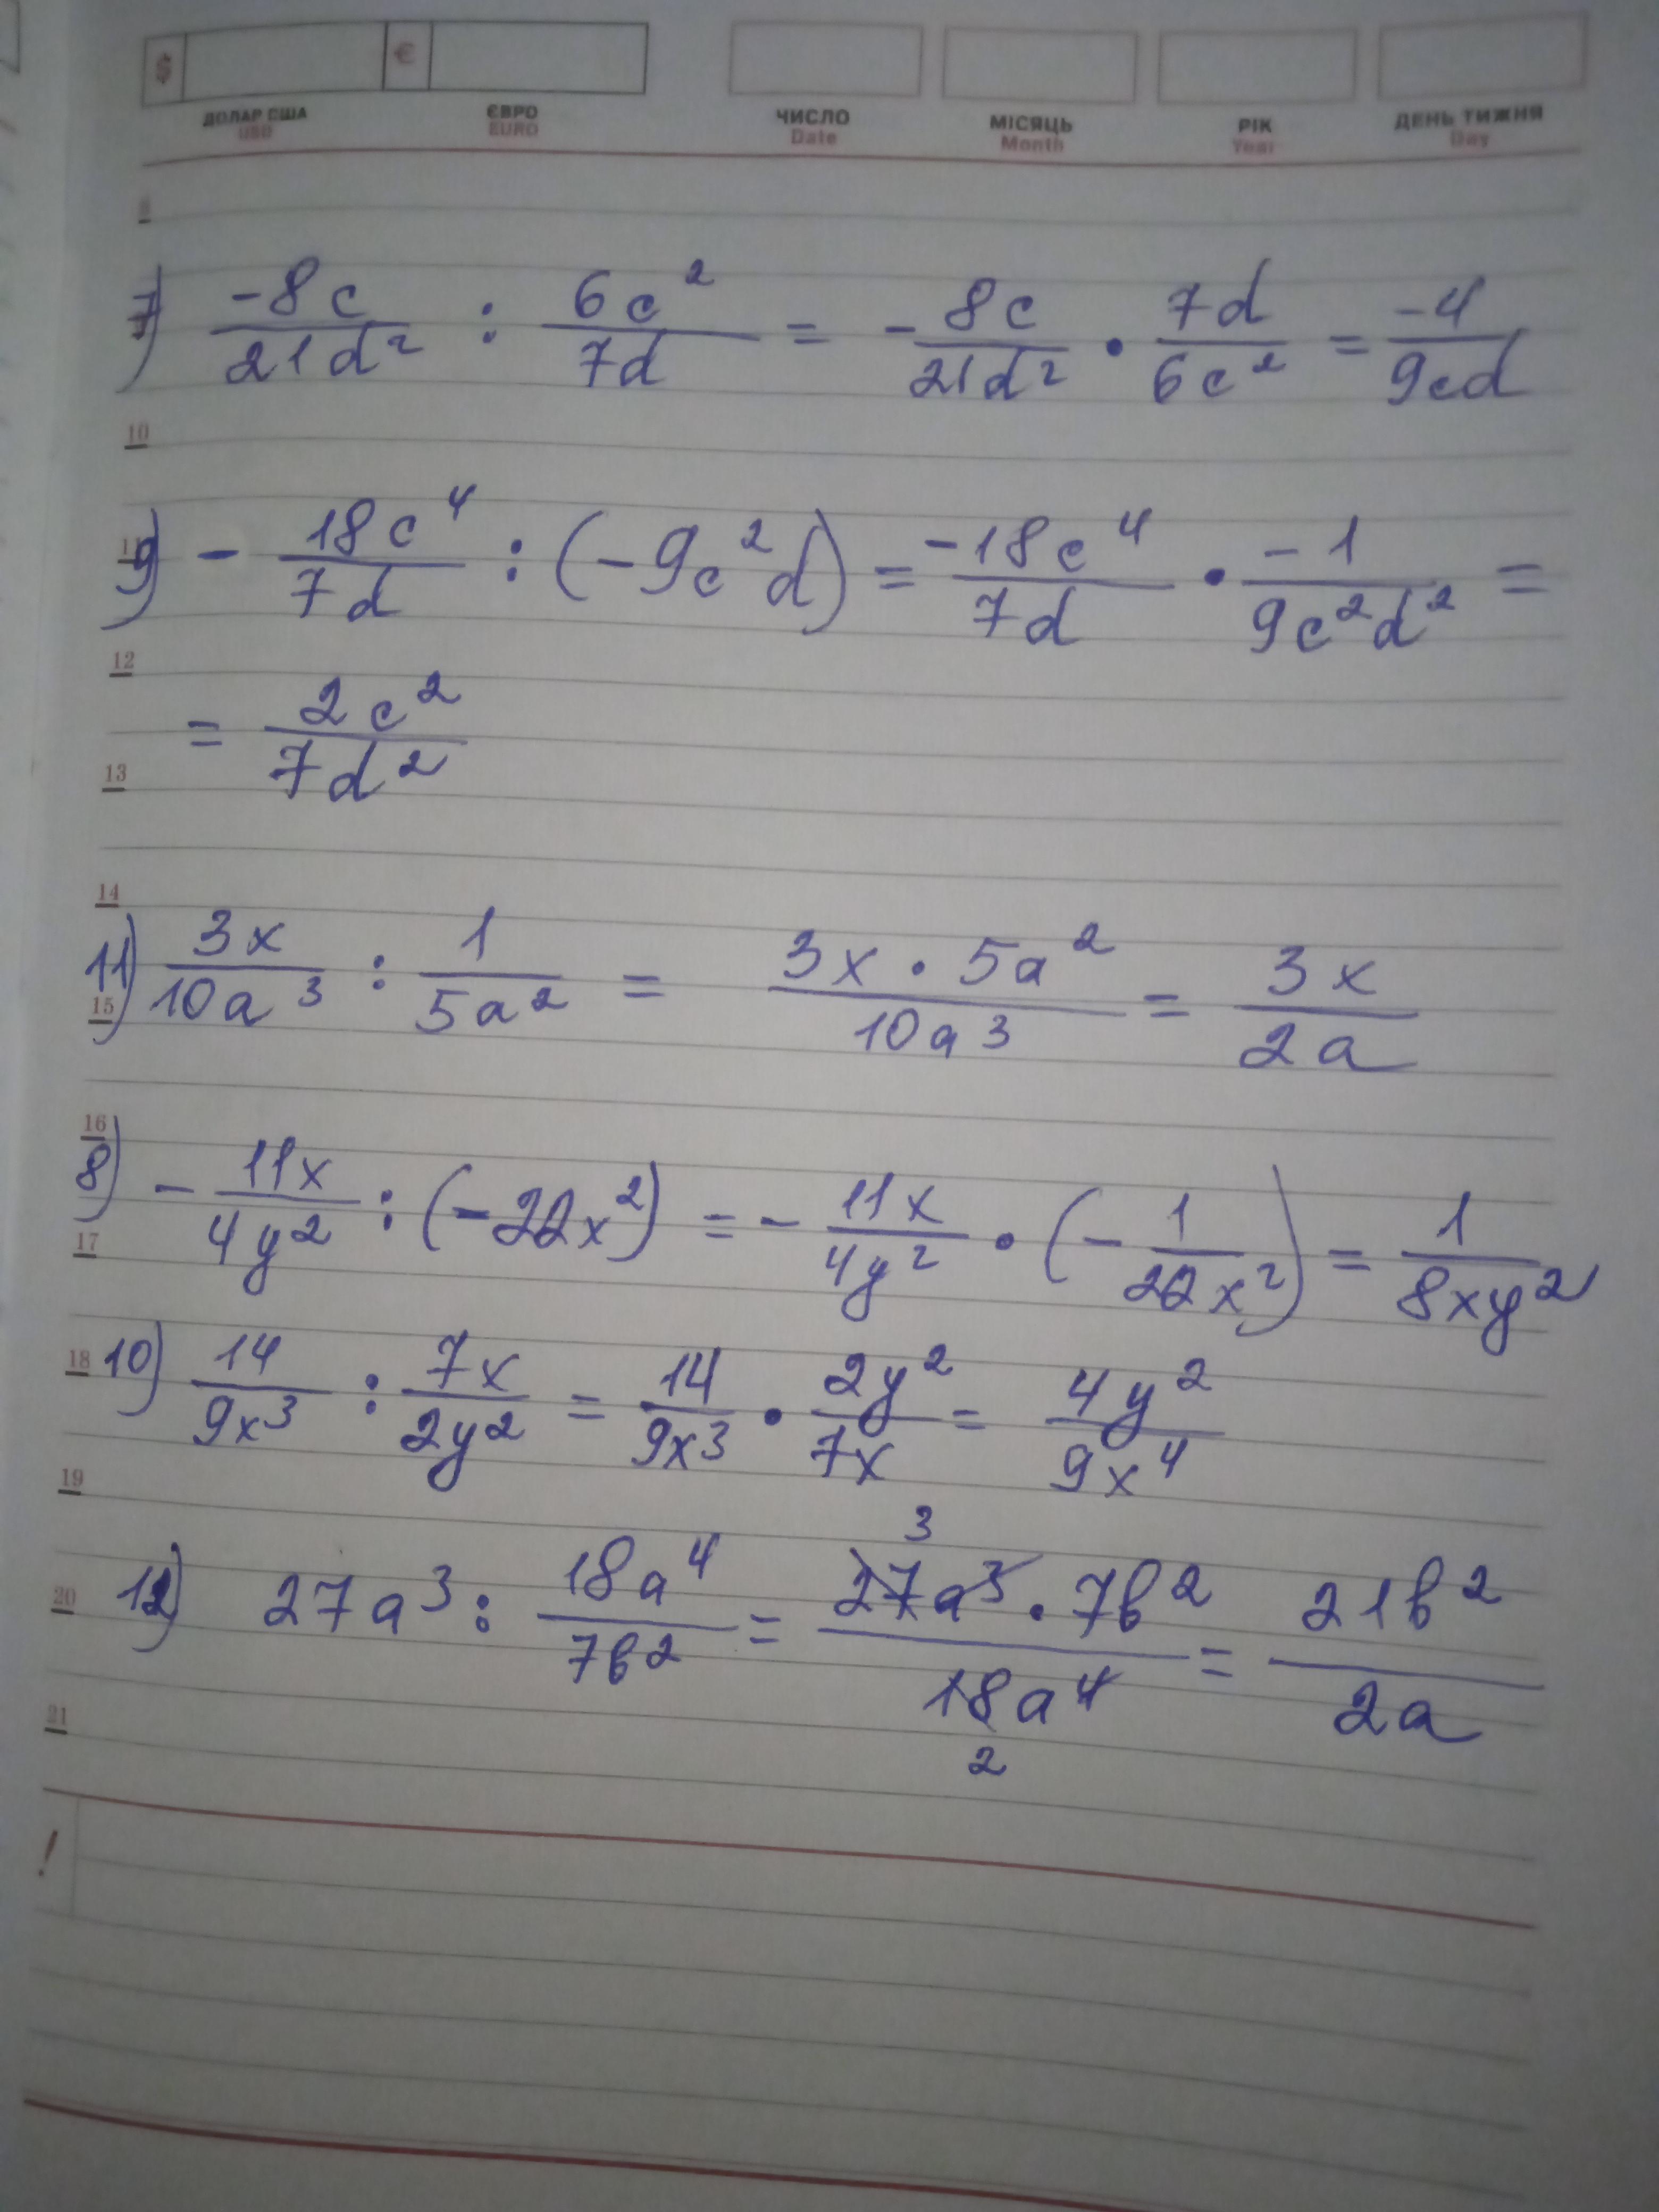 $ €
ДОЛАР США ЄВРО ЧИСЛО МІСЯЦЬ РІК ДЕНЬ ТИЖНЯ
USD EURO Date Month Year Day
8
7) \frac{-8c}{21d^2} : \frac{6c^2}{7d} = -\frac{8c}{21d^2} \cdot \frac{7d}{6c^2} = \frac{-4}{9cd}
10
11
9) -\frac{18c^4}{7d} : (-9c^2d) = \frac{-18c^4}{7d} \cdot \frac{-1}{9c^2d^2} =
12
= \frac{2c^2}{7d^2}
13
14
11) \frac{3x}{10a^3} : \frac{1}{5a^2} = \frac{3x \cdot 5a^2}{10a^3} = \frac{3x}{2a}
15
16
8) -\frac{11x}{4y^2} : (-22x^2) = -\frac{11x}{4y^2} \cdot (-\frac{1}{22x^2}) = \frac{1}{8xy^2}
17
18
10) \frac{14}{9x^3} : \frac{7x}{2y^2} = \frac{14}{9x^3} \cdot \frac{2y^2}{7x} = \frac{4y^2}{9x^4}
19
3
20
12) 27a^3 : \frac{18a^4}{7b^2} = \frac{27a^3 \cdot 7b^2}{18a^4} = \frac{21b^2}{2a}
2
21
!